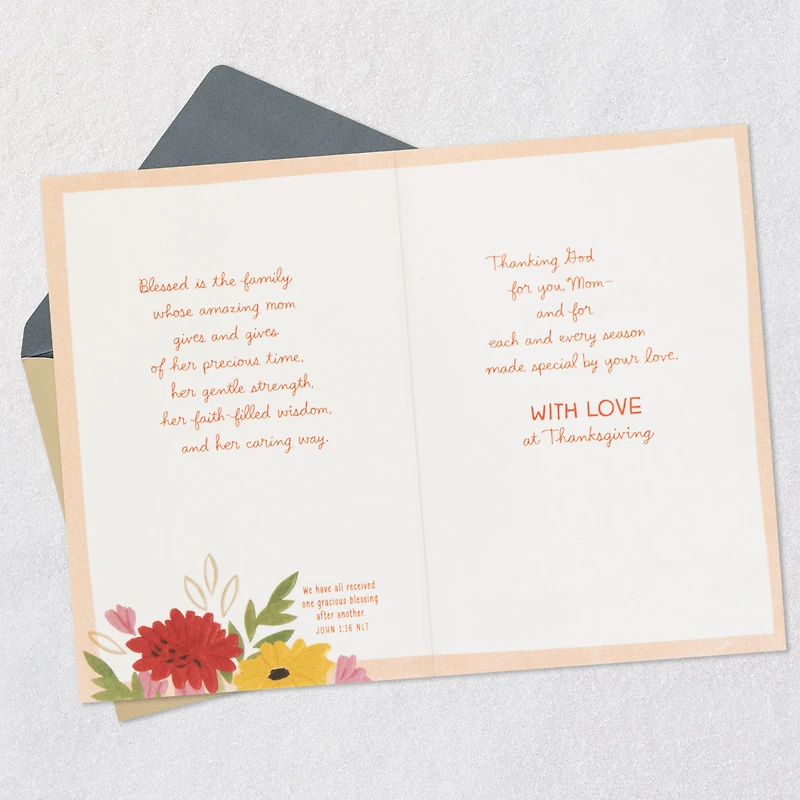 Blessed is the family
whose amazing mom
gives and gives
of her precious time,
her gentle strength,
her faith-filled wisdom,
and her caring way.
We have all received
one gracious blessing
after another.
JOHN 1:16 NLT
Thanking God
for you, Mom—
and for
each and every season
made special by your love.
WITH LOVE
at Thanksgiving